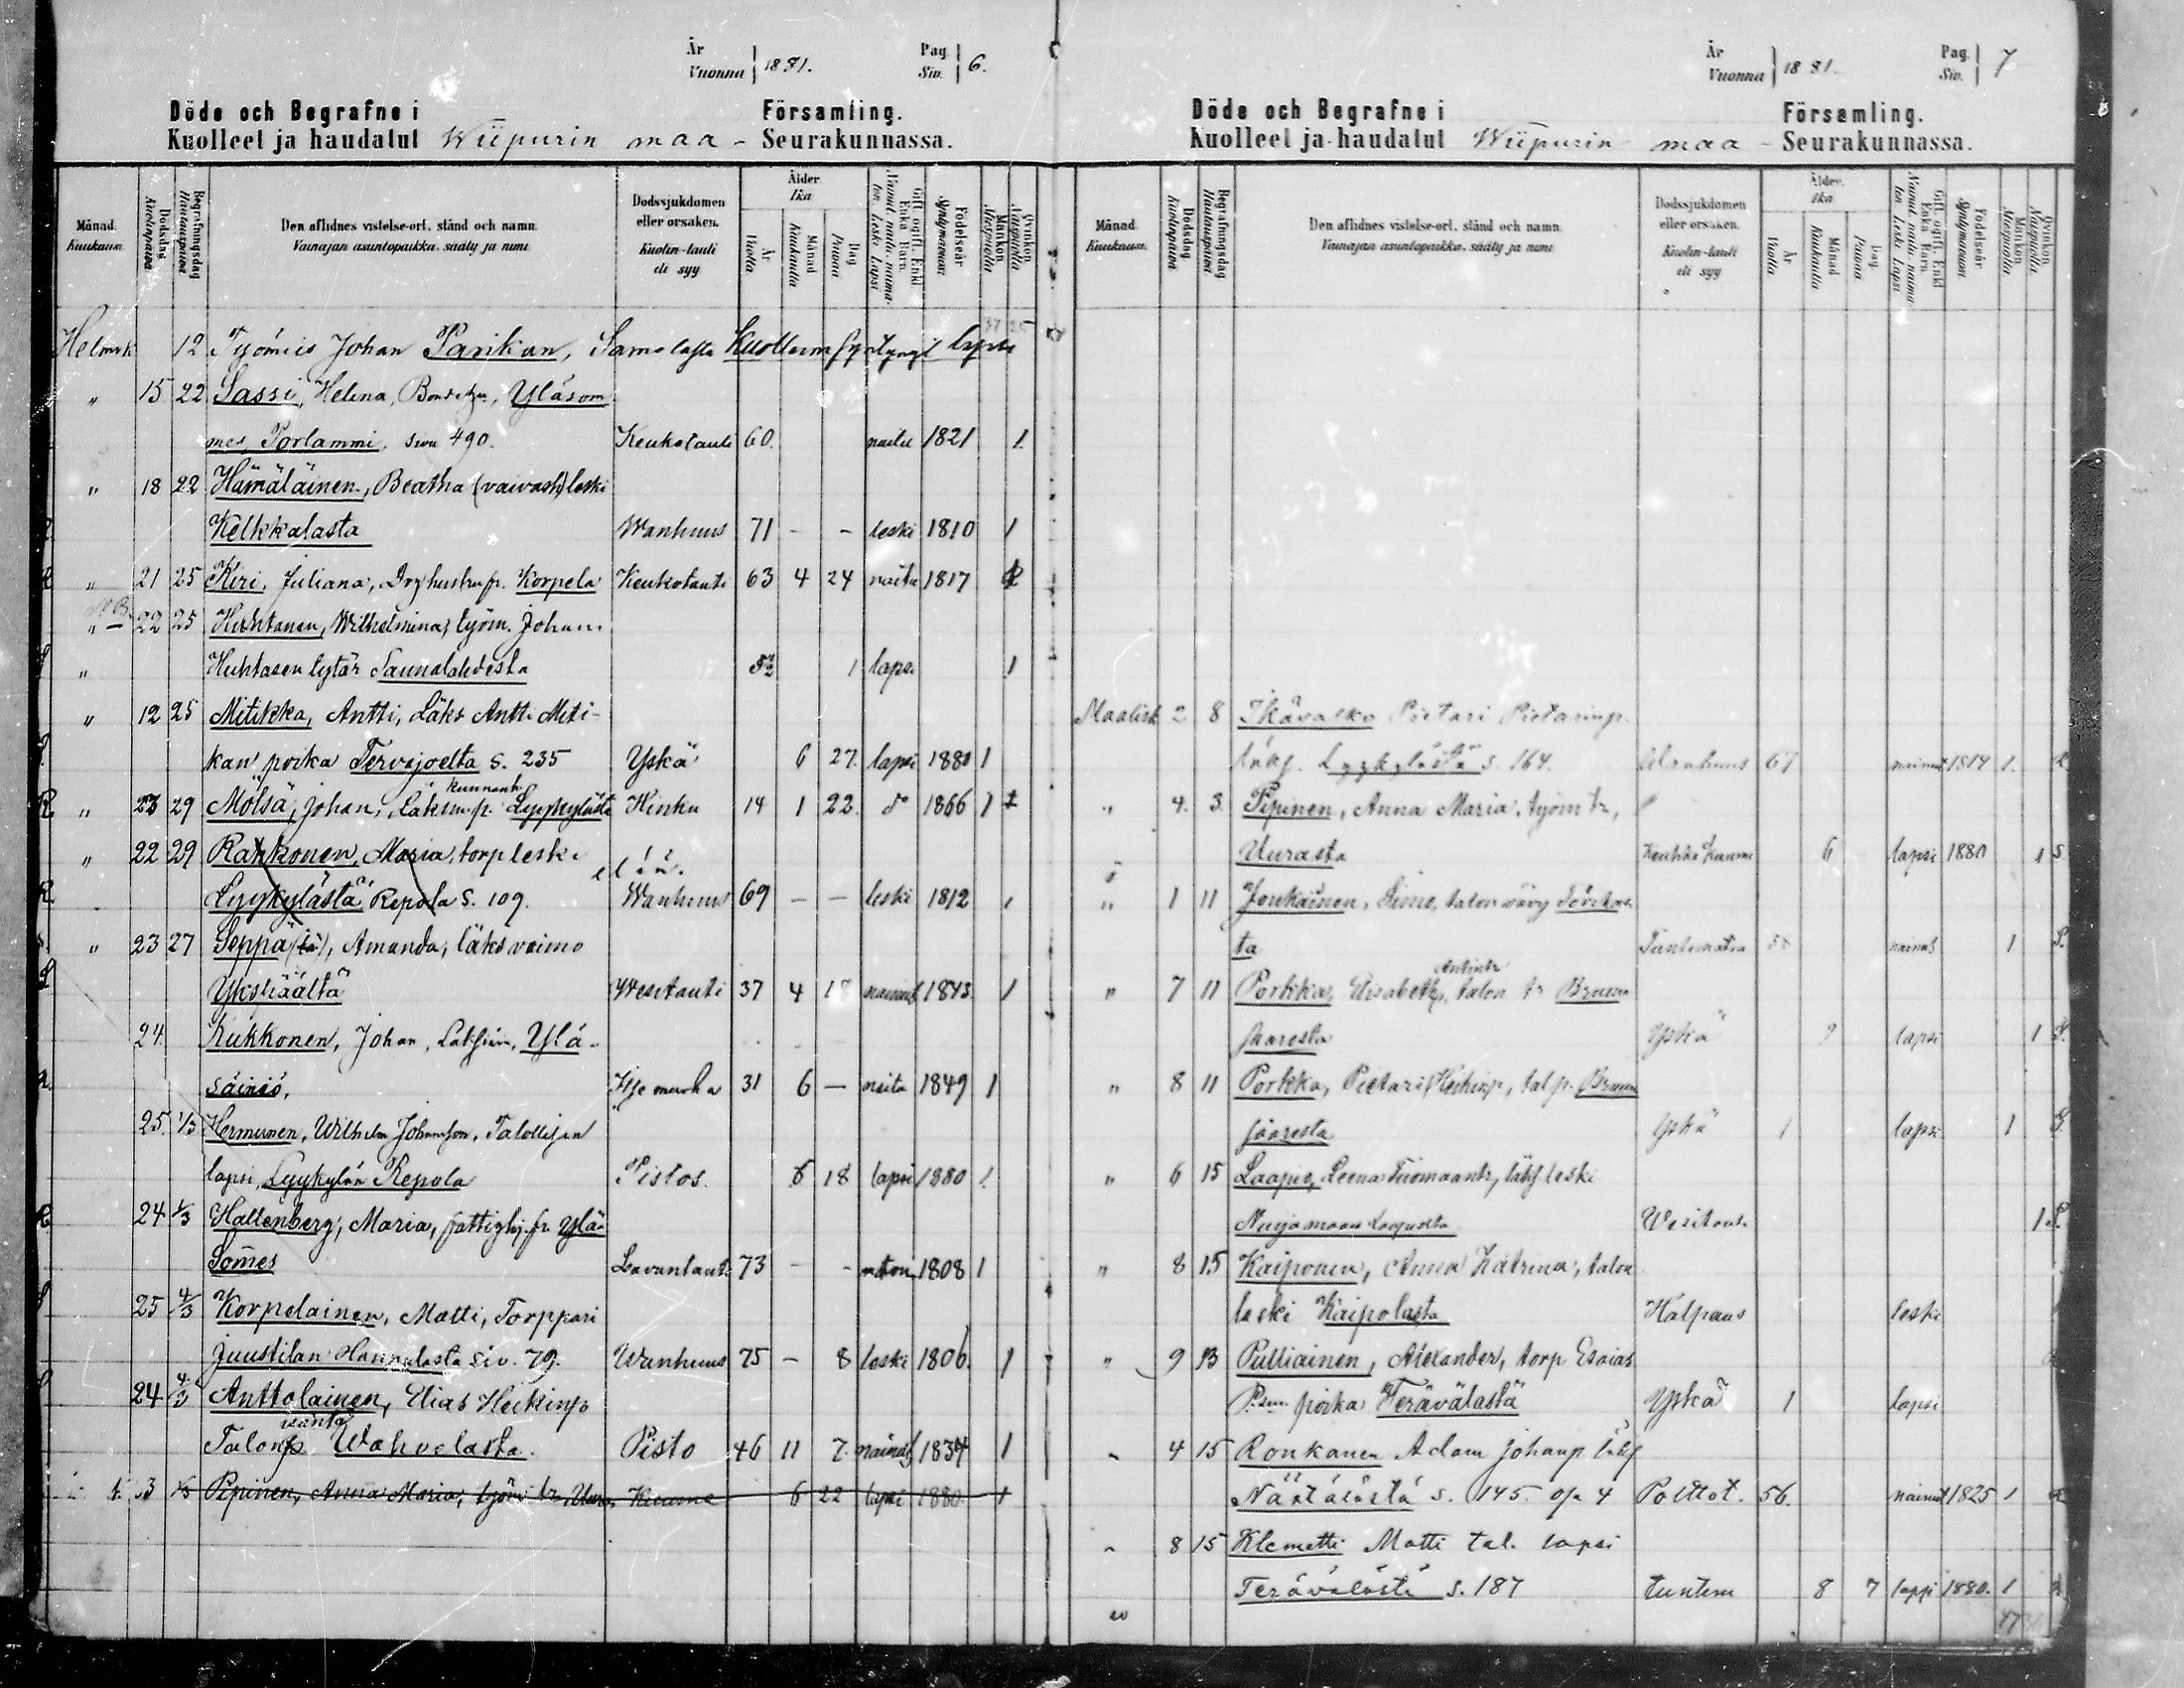 År
Vuonna 1881.
Pag.
Siv. 6.
Döde och Begrafne i Församling.
Kuolleet ja haudatut Wiipurin maa - Seurakunnassa.
Månad. Kuukausi.
Dödsdag Kuolinpäivä
Begrafningsdag Hautauspäivä
Den aflidnes vistelse-ort, stånd och namn.
Vainajan asuntopaikka, sääty ja nimi.
Dödssjukdomen eller orsaken.
Kuolin-tauti eli syy
Ålder. Ikä
År Vuotta
Månad Kuukautta
Dag Päivää
Gift, ogift, Enkl. Enka Barn.
Nainut, naitu, naimaton, Leski Lapsi
Födelseår Syntymävuosi
Mankön. Miespuolia
Qvinkön. Naispuolia
Helmik 12 Työmies Johan Parikan, Samolasta Kuollena syntynyt lapsi
" 15 22 Sassi, Helena, Yläsom
mes, Porlammi. siwu 490. Keukotauti 60. naitu 1821 1.
" 18 22 Hämäläinen, Beatha (vaivash) leski
Kelkkalasta Wanhuus 71 - - leski 1810 1
R " 21 25 Kiri, Juliana, Korpela Keukotauti 63 4 24 naitu 1817
NB.
" 22 25 Huhtanen, Wilhelmina, työm. Johan
" Huhtasen tytär Saunalahdesta 1 lapsi 1
" 12 25 Mitikka, Antti, Läks Antti Miti-
kan poika Tervajoelta S. 235 Yskä 6 27. lapsi 1880 1
R " 23 29 Mölsä, Johan, Lyykylästä Hinku 14 1 22. do 1866 1
" 22 29 Rahkonen, Maria, torp leski
R. Lyykylästä Repola S. 109. Wanhuus 69 - - leski 1812
" 23 27 Seppä, Amanda, läks vaimo
Ykspäältä Wesitauti 37 4 18 nainut 1843 1
24. Kukkonen, Johan, Ylä-
säiniö. Itse murha 31 6 — naitu 1849 1
25. 1/3 Hermunen, Wilhelm Johansson, Talollisen
lapsi, Lyykylän Repola Pistos. 6 18 lapsi 1880 1.
R. 24 1/3 Hallenberg, Maria, fattighj. fr. Ylä-
Somes 73 - - 1808 1
25 4/3 Korpelainen, Matti, Torppari
Juustilan Hannulasta siv. 79. Wanhuus 75 - 8 leski 1806. 1
24 4/3 Anttolainen, Elias Heikinp
isäntä
Talon Wahvolasta. Pisto 46 11 7. nainut 1834 1
3 Pipinen, Anna Maria, työm tr, Uura, Kuume 6 22 lapsi 1880 1
År
Vuonna 1881.
Pag.
Siv. 7
Döde och Begrafne i Församling.
Kuolleet ja haudatut Wiipurin maa - Seurakunnassa.
Månad. Kuukausi.
Dödsdag Kuolinpäivä
Begrafningsdag Hautauspäivä
Den aflidnes vistelse-ort, stånd och namn.
Vainajan asuntopaikka, sääty ja nimi
Dödssjukdomen eller orsaken.
Kuolin-tauti eli syy
Ålder. Ikä
År Vuotta
Månad Kuukautta
Dag. Päivää
Gift, ogift, Enkl. Enka Barn.
Nainut, naitu, naimaton, Leski Lapsi
Födelseår Syntymävuosi
Mankön. Miespuolia
Qvinkön. Naispuolia
Maalisk 2 8 Ikävalko Pietari Pietarinp.
Lyykylästä S. 164. Wanhuus 67 nainut 1814 1.
" 4. 8. Pipinen, Anna Maria, työm tr,
Uurasta Keuhko kuume 6 lapsi 1880 1 S.
" 1 11 Joukainen, Simo, talon vävy
ta Tuntematon 58 nainut 1
" 7 11 Porkka, Elisabeth, Antintr talon tr
jaaresta Yskä lapsi 1
" 8 11 Porkka, Pietari Heikinp, tal p.
jaaresta Yskä 1 lapsi 1
" 6 15 Laapio, Leena Tuomaantr, läks leski
Nuijamaan 1
" 8 15 Kaiponen, Anna Katrina, talon
leski Kaipolasta Halpaus leski
" 9 13 Pulliainen, Alexander, torp Esaias
P:sen poika Terävälästä Yskä 1 lapsi
" 4 15 Ronkanen Adam Johanp
Näätälästä S. 145. Polttot. 56. nainut 1825 1
" 8 15 Klemetti Matti tal. lapsi
Terävälästä S. 187 tuntem 8 7 lapsi 1880. 1